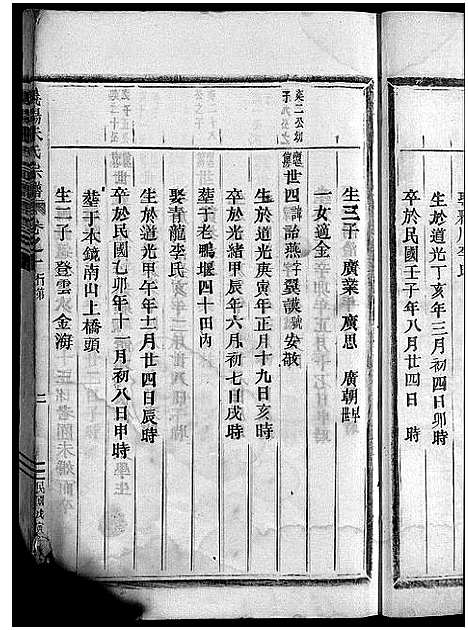 卒於民國壬子年八月廿四日 時
生於道光丁亥年三月初四日卯時
生三子 廣業 廣思 廣朝
一女適全
世四 諱詒燕字翼謨號安敬
生於道光庚寅年正月十九日亥時
卒於光緒甲辰年六月初七日戌時
塟于老鴨堰四十田內
娶青龍李氏
生於道光甲午年十二月廿四日辰時
卒於民國乙卯年十一月初八日申時
塟于木鏡南山上橋頭
生二子 登雲 金海
陽朱氏宗譜 卷之